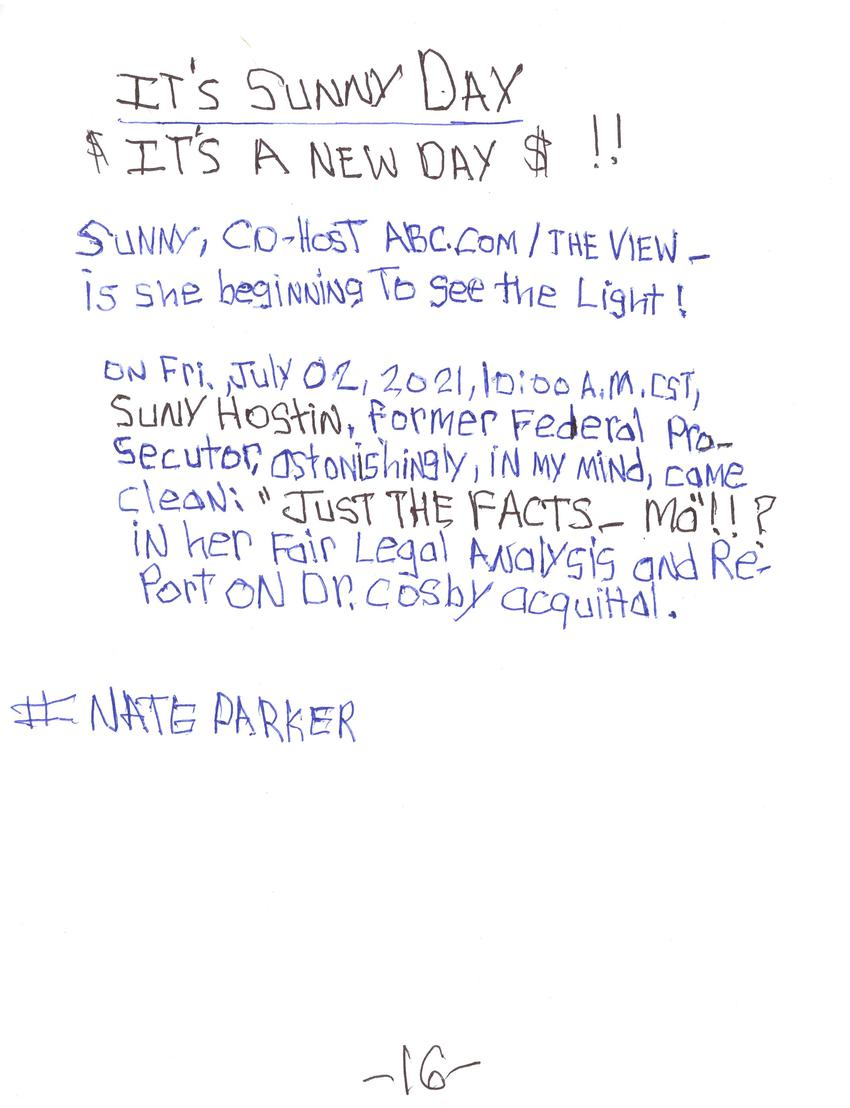 IT'S SUNNY DAY
$ IT'S A NEW DAY $ !!
SUNNY, CO-HOST ABC.COM / THE VIEW –
is she beginning To see the Light!
ON Fri., July 02, 2021, 10:00 A.M. CST,
SUNY HOSTIN, Former Federal Pro-
secutor, astonishingly, in my mind, came
clean: "JUST THE FACTS – Ma"!! ?
in her Fair Legal Analysis and Re-
Port ON Dr. Cosby acquittal.
# NATE PARKER
-16-